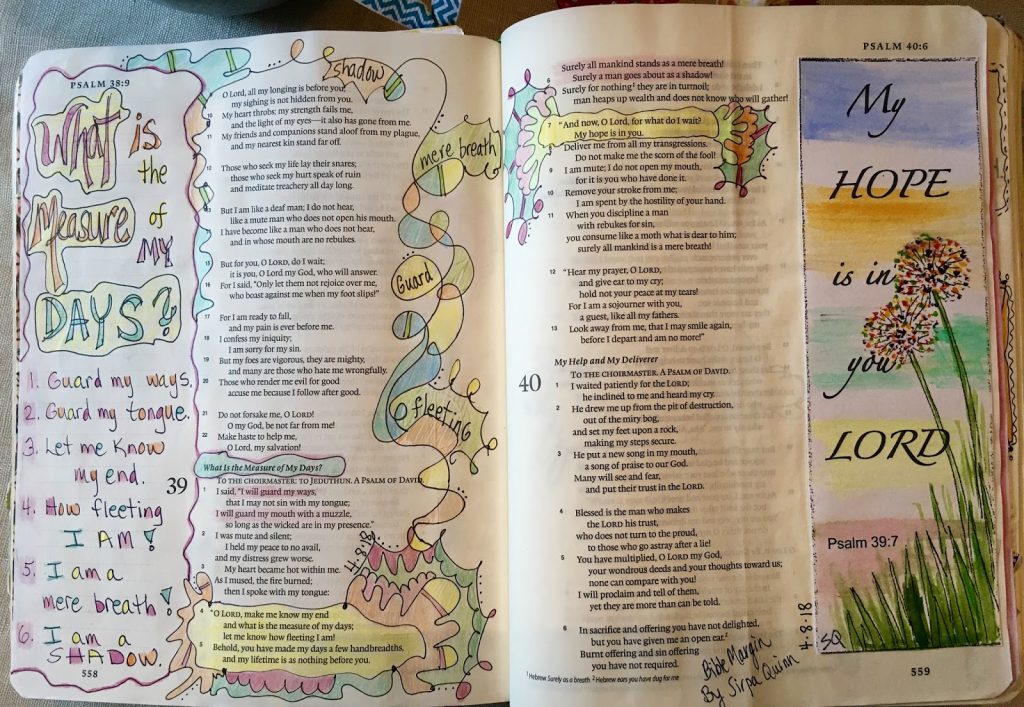 PSALM 38:9
What is
the
Measure of
MY
DAYS?
1. Guard my ways.
2. Guard my tongue.
3. Let me Know
my end.
4. How fleeting
I AM!
5. I am a
mere breath!
6. I am a
SHADOW.
558
O Lord, all my longing is before you;
my sighing is not hidden from you.
10 My heart throbs; my strength fails me,
and the light of my eyes—it also has gone from me.
11 My friends and companions stand aloof from my plague,
and my nearest kin stand far off.
12 Those who seek my life lay their snares;
those who seek my hurt speak of ruin
and meditate treachery all day long.
13 But I am like a deaf man; I do not hear,
like a mute man who does not open his mouth.
14 I have become like a man who does not hear,
and in whose mouth are no rebukes.
15 But for you, O LORD, do I wait;
it is you, O Lord my God, who will answer.
16 For I said, "Only let them not rejoice over me,
who boast against me when my foot slips!"
17 For I am ready to fall,
and my pain is ever before me.
18 I confess my iniquity;
I am sorry for my sin.
19 But my foes are vigorous, they are mighty,
and many are those who hate me wrongfully.
20 Those who render me evil for good
accuse me because I follow after good.
21 Do not forsake me, O LORD!
O my God, be not far from me!
22 Make haste to help me,
O Lord, my salvation!
What Is the Measure of My Days?
39
TO THE CHOIRMASTER: TO JEDUTHUN. A PSALM OF DAVID.
1 I said, "I will guard my ways,
that I may not sin with my tongue;
I will guard my mouth with a muzzle,
so long as the wicked are in my presence."
2 I was mute and silent;
I held my peace to no avail,
and my distress grew worse.
3 My heart became hot within me.
As I mused, the fire burned;
then I spoke with my tongue:
4 "O LORD, make me know my end
and what is the measure of my days;
let me know how fleeting I am!
5 Behold, you have made my days a few handbreadths,
and my lifetime is as nothing before you.
shadow
mere breath
Guard
fleeting
4·8·18
PSALM 40:6
Surely all mankind stands as a mere breath!
6 Surely a man goes about as a shadow!
Surely for nothing¹ they are in turmoil;
man heaps up wealth and does not know who will gather!
7 "And now, O Lord, for what do I wait?
My hope is in you.
8 Deliver me from all my transgressions.
Do not make me the scorn of the fool!
9 I am mute; I do not open my mouth,
for it is you who have done it.
10 Remove your stroke from me;
I am spent by the hostility of your hand.
11 When you discipline a man
with rebukes for sin,
you consume like a moth what is dear to him;
surely all mankind is a mere breath!
12 "Hear my prayer, O LORD,
and give ear to my cry;
hold not your peace at my tears!
For I am a sojourner with you,
a guest, like all my fathers.
13 Look away from me, that I may smile again,
before I depart and am no more!"
My Help and My Deliverer
40
TO THE CHOIRMASTER. A PSALM OF DAVID.
1 I waited patiently for the LORD;
he inclined to me and heard my cry.
2 He drew me up from the pit of destruction,
out of the miry bog,
and set my feet upon a rock,
making my steps secure.
3 He put a new song in my mouth,
a song of praise to our God.
Many will see and fear,
and put their trust in the LORD.
4 Blessed is the man who makes
the LORD his trust,
who does not turn to the proud,
to those who go astray after a lie!
5 You have multiplied, O LORD my God,
your wondrous deeds and your thoughts toward us;
none can compare with you!
I will proclaim and tell of them,
yet they are more than can be told.
6 In sacrifice and offering you have not delighted,
but you have given me an open ear.²
Burnt offering and sin offering
you have not required.
¹ Hebrew Surely as a breath ² Hebrew ears you have dug for me
Bible Margin
By Sirpa Quinn
4·8·18
My
HOPE
is in
you
LORD
Psalm 39:7
SQ
559